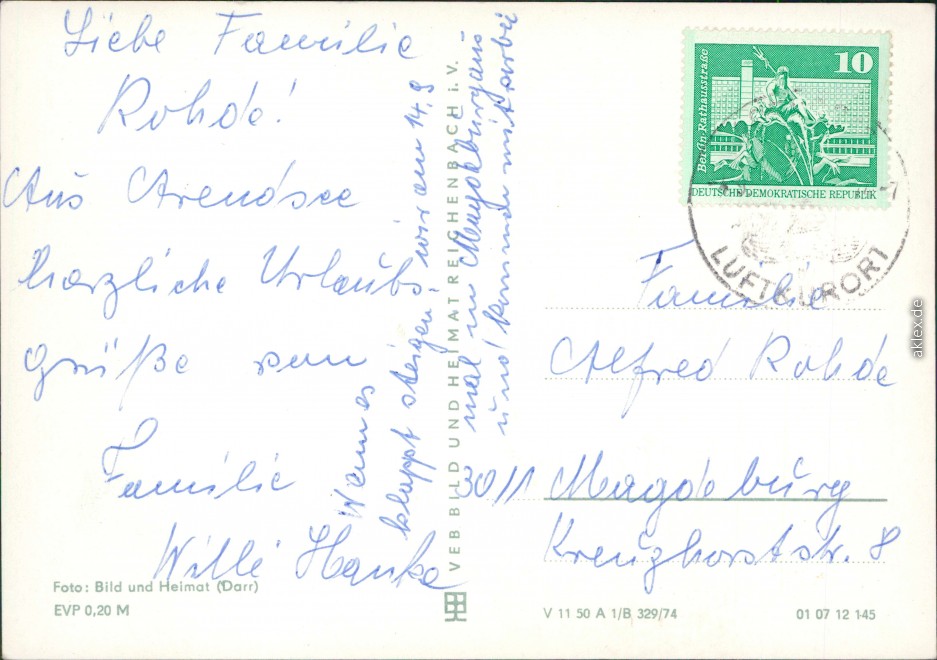 Liebe Familie
Rohde!
Aus Arendsee
herzliche Urlaubs-
grüße von
Familie
Willi Hanke
Wenn es
klappt steigen wir am 14.9
mal in Magdeburg aus
und kommen mit vorbei
VEB BILD UND HEIMAT REICHENBACH i. V.
Berlin-Rathausstraße
10
DEUTSCHE DEMOKRATISCHE REPUBLIK
LUFTKURORT
Familie
Alfred Rohde
3011 Magdeburg
Kreuzhorststr. 8
Foto: Bild und Heimat (Darr)
EVP 0,20 M
V 11 50 A 1/B 329/74
01 07 12 145
aklex.de